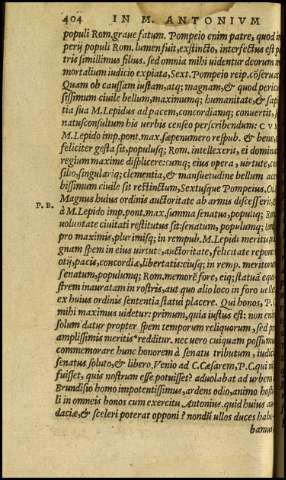 404 IN M. ANTONIVM
populi Rom. graue fatum. Pompeio enim patre, quod im
perij populi Rom. lumen fuit, exstincto, interfectus est pa
tris simillimus filius. sed omnia mihi uidentur deorum im
mortalium iudicio expiata, Sex. Pompeio reip. cōseruato.
Quam ob caussam iustam, atq; magnam, & quod pericu
sissimum ciuile bellum, maximumq; humanitate, & sapi
tia sua M. Lepidus ad pacem, concordiamq; conuertit, se
natusconsultum his uerbis censeo perscribendum: CVM
M. Lepido imp. pont. max. sæpenumero respub. & bene, &
feliciter gesta sit, populusq; Rom. intellexerit, ei dominatum
regium maxime displicere: cumq; eius opera, uirtute, con
silio, singulariq; clementia, & mansuetudine bellum acer
bissimum ciuile sit restinctum, Sextusque Pompeius, Cn.
Magnus huius ordinis auctoritate ab armis discesserit, &
P. R. à M. Lepido imp. pont. max. summa senatus, populiq; Rom.
uoluntate ciuitati restitutus sit: senatum, populumq; Rom.
pro maximis, plurimisq; in rempub. M. Lepidi meritis ma
gnam spem in eius uirtute, auctoritate, felicitate reponere
otij, pacis, concordiæ, libertatis: eiusq; in remp. meritorum
senatum, populumq; Rom. memorē fore, eiq; statuā eque
strem inauratam in rostris, aut quo alio loco in foro uellet
ex huius ordinis sententia statui placere. Qui honos, P. C.
mihi maximus uidetur: primum, quia iustus est: non enim
solum datur propter spem temporum reliquorum, sed pro
amplissimis meritis redditur. nec uero cuiquam possumus
commemorare hunc honorem à senatu tributum, iudicio
senatus soluto, & libero. Venio ad C. Cæsarem, P. C. qui ni
fuisset, quis nostrum esse potuisset? aduolabat ad urbem à
Brundisio homo impotentissimus, ardens odio, animo hosti
li in omneis bonos cum exercitu Antonius. quid huius au
daciæ, & sceleri poterat opponi? nondū ullos duces habe
bamus